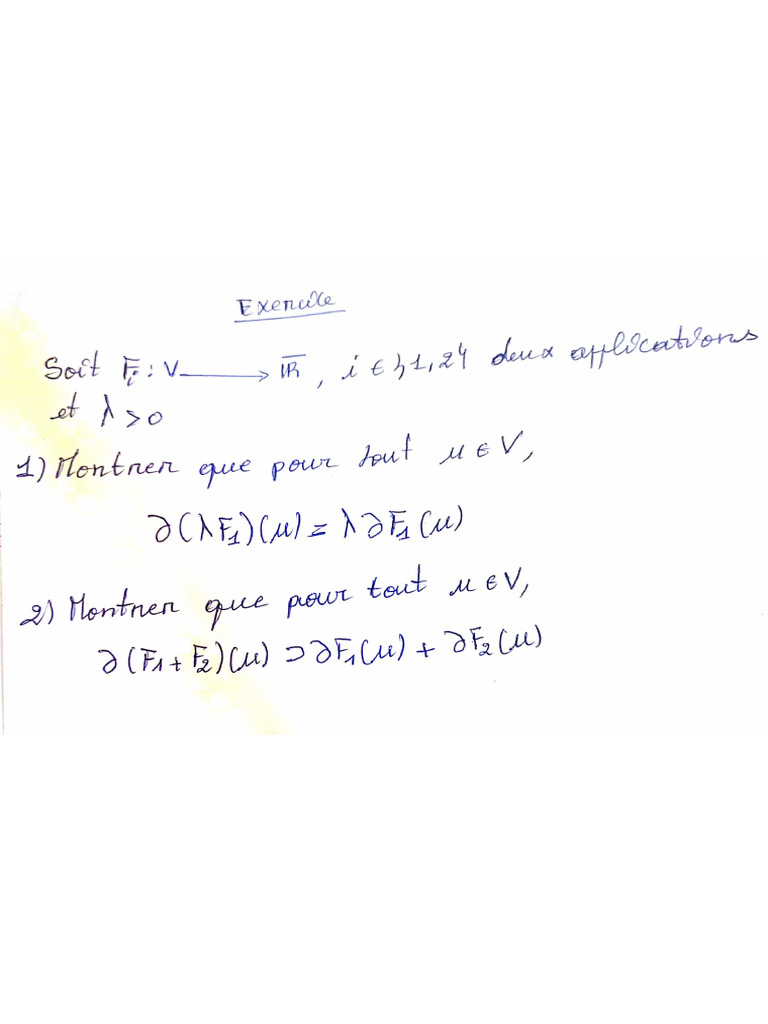 Exercice
Soit Fᵢ : V ⟶ ℝ̅, i ∈ {1,2} deux applications
et λ > 0
1) Montrer que pour tout u ∈ V,
∂(λF₁)(u) = λ∂F₁(u)
2) Montrer que pour tout u ∈ V,
∂(F₁ + F₂)(u) ⊃ ∂F₁(u) + ∂F₂(u)